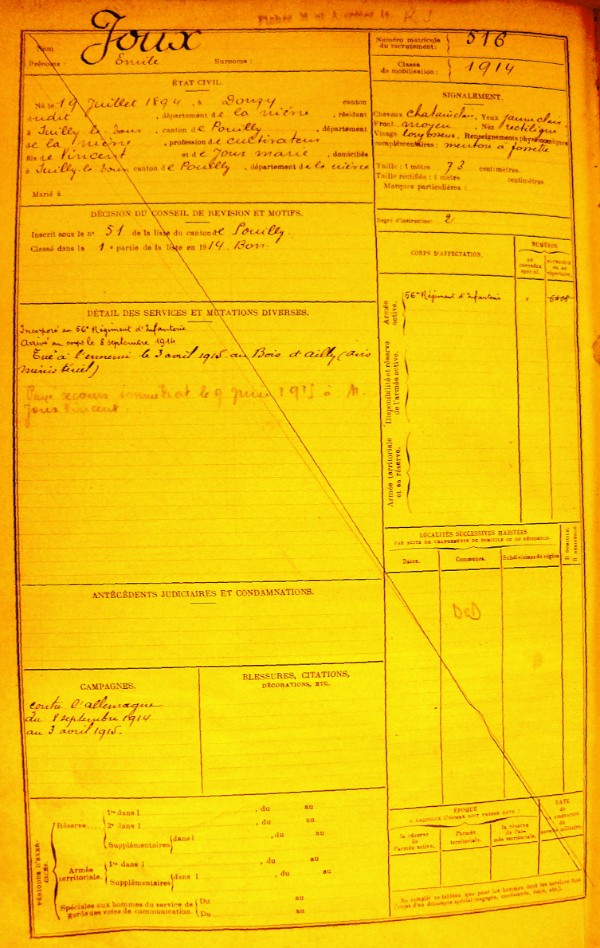 Joux
Nom
Prénoms : Emile Surnoms :
Numéro matricule
du recrutement : 516
Classe
de mobilisation : 1914
ÉTAT CIVIL.
Né le 19 Juillet 1894, à Donzy canton
dudit, département de la nièvre, résidant
à Suilly la Tour, canton de Pouilly, département
de la nièvre, profession de cultivateur
fils de Vincent et de Joux marie, domiciliés
à Suilly la Tour canton de Pouilly, département de la nièvre
Marié à
SIGNALEMENT.
Cheveux chatain clair, Yeux jaune clair
Front moyen, Nez rectiligne
Visage long osseux, Renseignements physionomiques
complémentaires : menton à fossette
Taille : 1 mètre 73 centimètres.
Taille rectifiée : 1 mètre centimètres.
Marques particulières :
Degré d'instruction : 2
DÉCISION DU CONSEIL DE REVISION ET MOTIFS.
Inscrit sous le n° 51 de la liste du canton de Pouilly.
Classé dans la 1e partie de la liste en 1914. Bon.
DÉTAIL DES SERVICES ET MUTATIONS DIVERSES.
Incorporé au 56e Régiment d'Infanterie
Arrivé au corps le 8 septembre 1914
Tué à l'ennemi le 3 avril 1915 au Bois d'ailly (avis
ministériel)
Payé secours immédiat le 9 juin 1915 à M.
Joux Vincent
CORPS D'AFFECTATION.
NUMÉROS
au
contrôle
spécial.
Armée
active.
56e Régiment d'Infanterie
Disponibilité et réserve
de l'armée active.
Armée territoriale
et sa réserve.
LOCALITÉS SUCCESSIVES HABITÉES
PAR SUITE DE CHANGEMENTS DE DOMICILE OU DE RÉSIDENCE.
Dates.
Communes.
Subdivisions de région.
D. DOMICILE.
R. RÉSIDENCE.
DCD
ANTÉCÉDENTS JUDICIAIRES ET CONDAMNATIONS.
CAMPAGNES.
contre l'allemagne
du 8 septembre 1914
au 3 avril 1915.
BLESSURES, CITATIONS,
DÉCORATIONS, ETC.
PÉRIODES D'EXERCICES.
Réserve....
1re dans l , du au
2e dans l , du au
Supplémentaires dans l , du au
Armée
territoriale.
1re dans l , du au
Supplémentaires dans l , du au
Spéciales aux hommes du service de
garde des voies de communication.
Du au
Du au
ÉPOQUE
À LAQUELLE L'HOMME DOIT PASSER DANS :
la réserve
de l'armée active.
l'armée
territoriale.
la réserve
de l'armée territoriale.
DATE
de
la libération
du
service militaire.